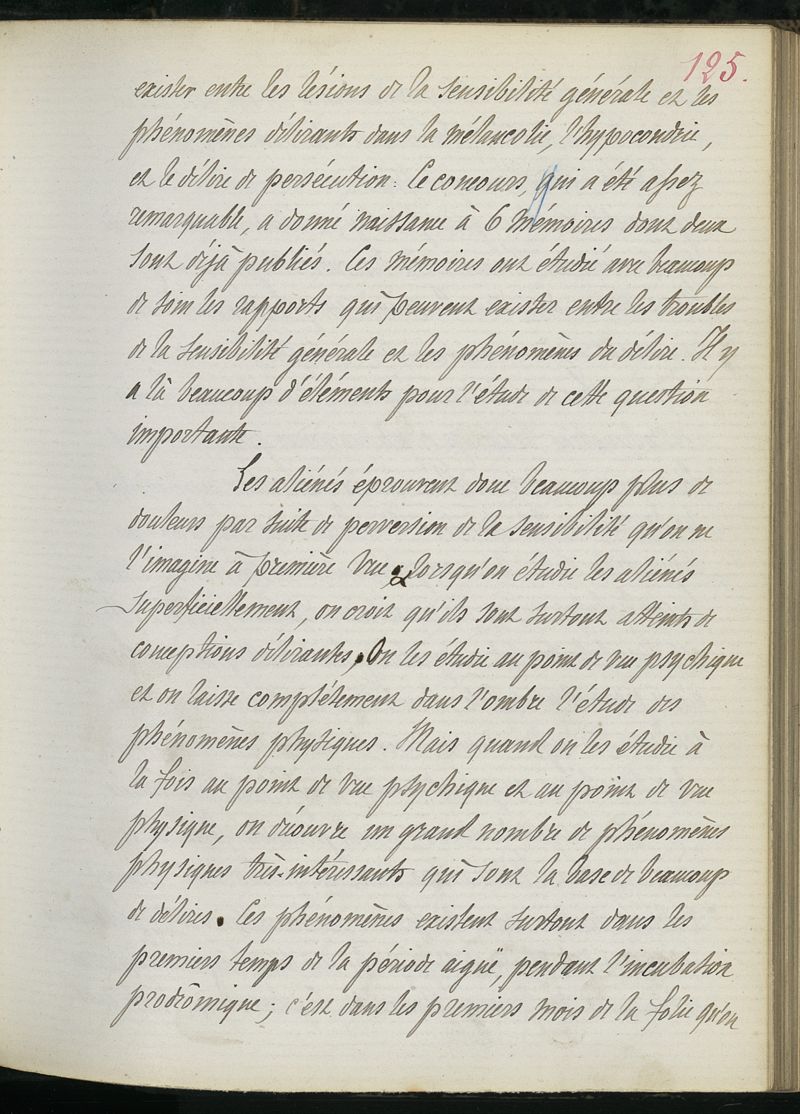 125.
exister entre les lésions de la sensibilité générale et les
phénomènes délirants dans la mélancolie, l'hypocondrie,
et le délire de persécution. Ce concours, qui a été assez
remarquable, a donné naissance à 6 mémoires dont deux
sont déjà publiés. Ces mémoires ont étudié avec beaucoup
de soin les rapports qui peuvent exister entre les troubles
de la sensibilité générale et les phénomènes du délire. Il y
a là beaucoup d'éléments pour l'étude de cette question
importante.
Les aliénés éprouvent donc beaucoup plus de
douleurs par suite de perversion de la sensibilité qu'on ne
l'imagine à première vue. Lorsqu'on étudie les aliénés
superficiellement, on croit qu'ils sont surtout atteints de
conceptions délirantes, On les étudie au point de vue psychique
et on laisse complétement dans l'ombre l'étude des
phénomènes physiques. Mais quand on les étudie à
la fois au point de vue psychique et au point de vue
physique, on découvre un grand nombre de phénomènes
physiques très-intéressants qui sont la base de beaucoup
de délires. Ces phénomènes existent surtout dans les
premiers temps de la période aiguë, pendant l'incubation
prodrômique ; c'est dans les premiers mois de la folie qu'on